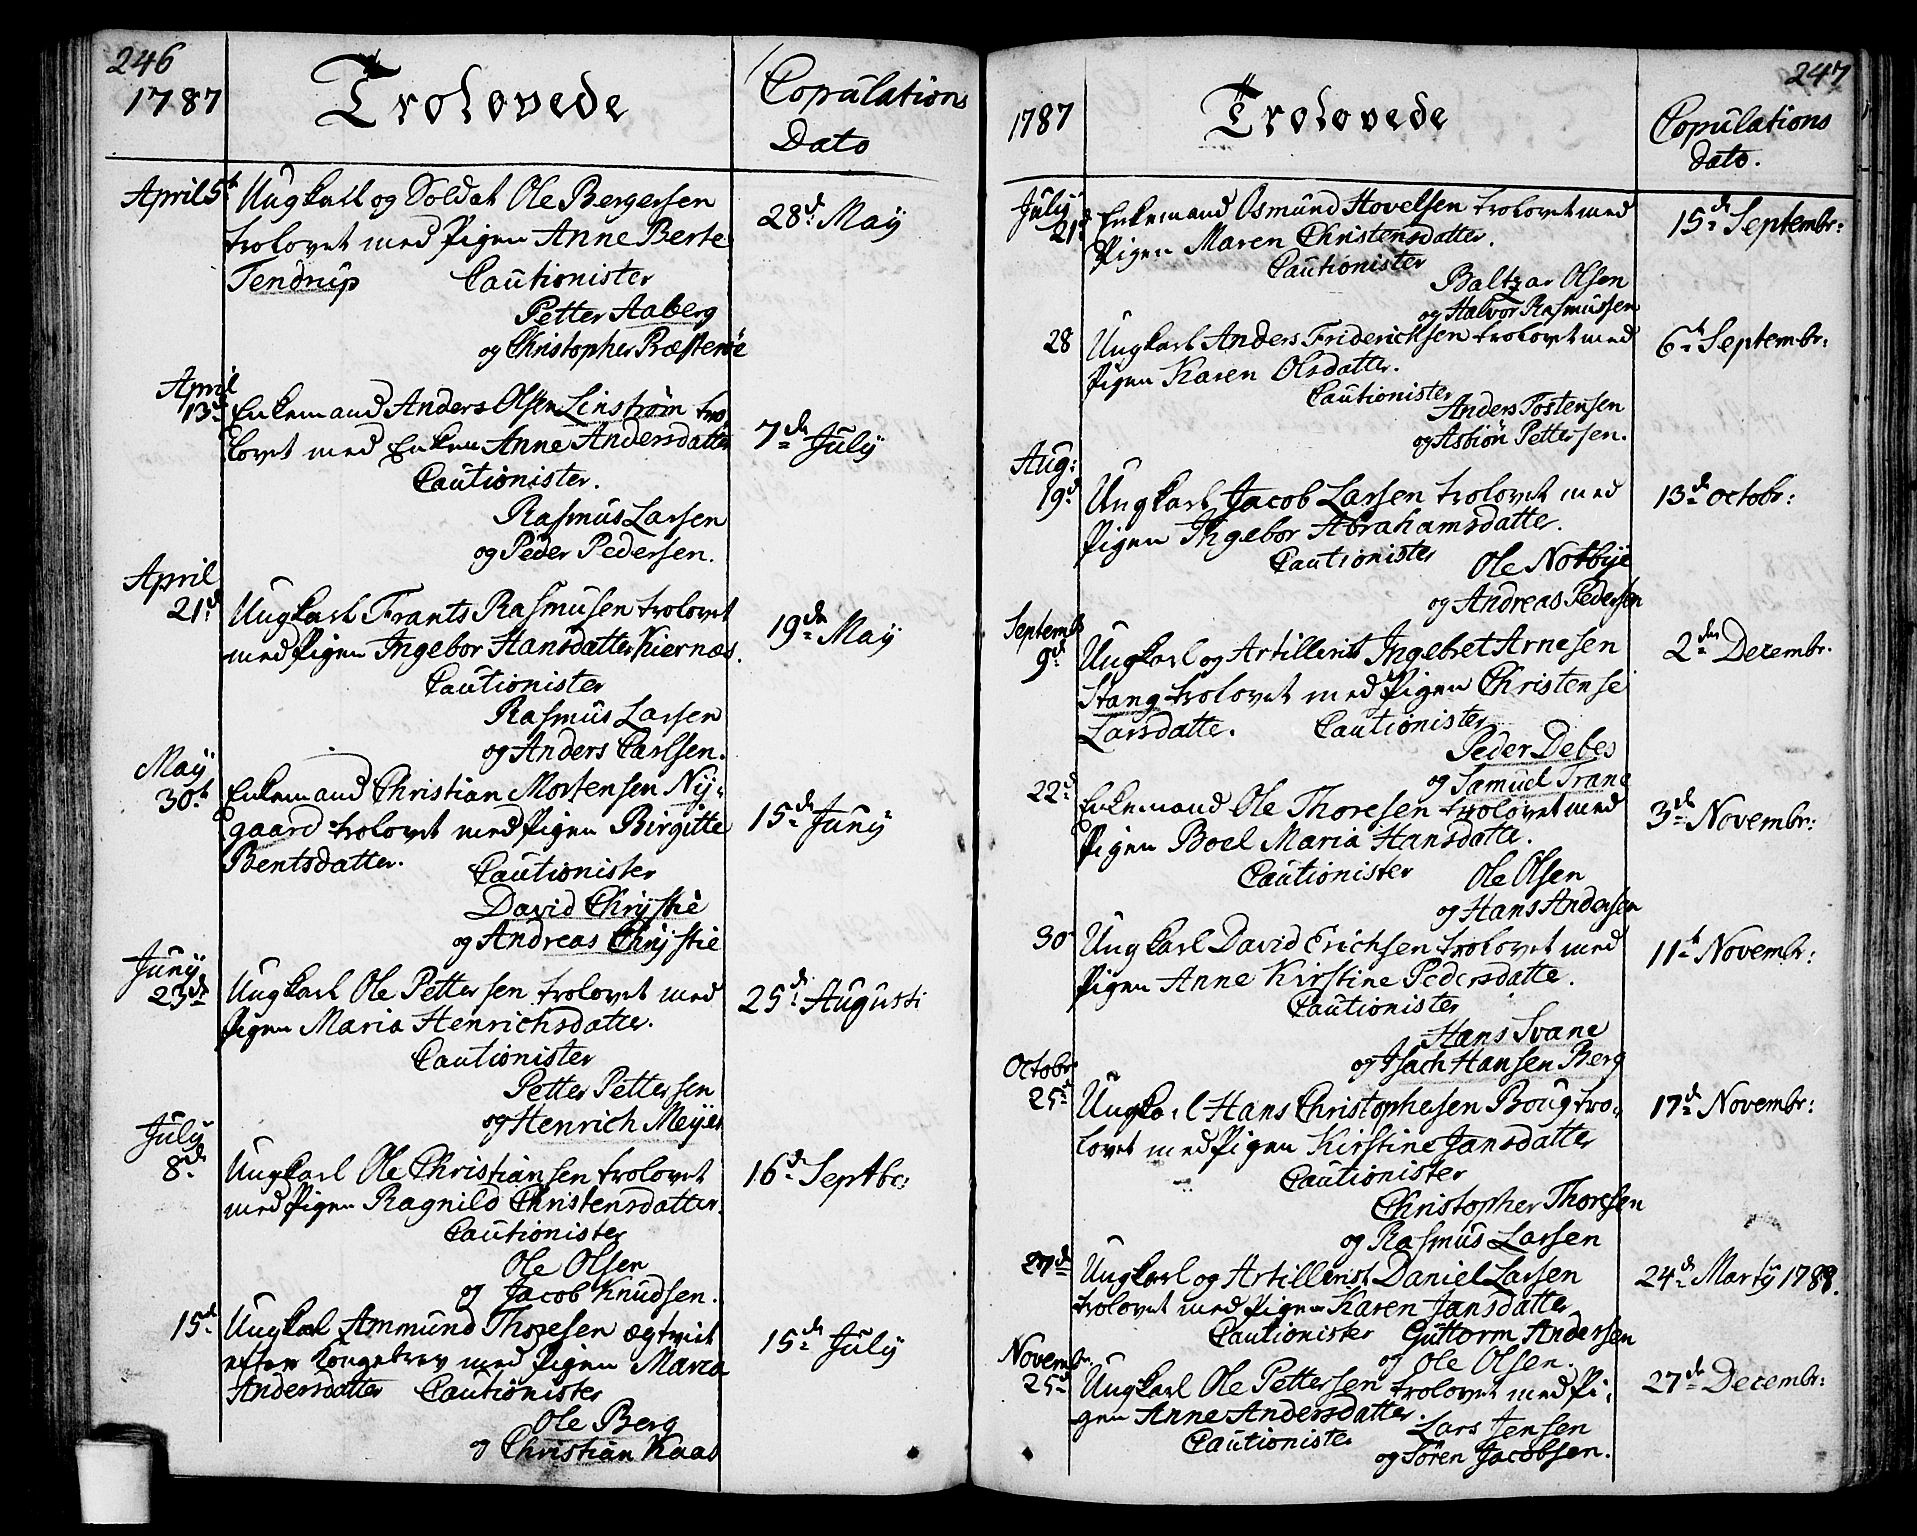 246
1787 Trolovede Copulations
Dato
April 5t Ungkarl og Soldat Ole Bergersen
trolovet med Pigen Anne Berte 28d May
Tendrup Cautionister
Petter Aaberg
og Christopher Præsterøe
April
13d Enkemand Anders Olsen Linstrøm tro,
lovet med Enken Anne Andersdatter 7de July
Cautionister.
Rasmus Larsen
og Peder Pedersen.
April
21d Ungkarl Frants Rasmusen trolovet
med Pigen Ingebor Hansdatter Kiernæs. 19de May
Cautionister
Rasmus Larsen
og Anders Carlsen.
May
30t Enkemand Christian Mortensen Ny,
gaard trolovet med Pigen Birgitte 15de Juny
Bentsdatter. Cautionister
David Chrystie
og Andreas Chrystie
Juny
23de Ungkarl Ole Pettersen trolovet med 25d Augusti
Pigen Maria Henrichsdatter.
Cautionister
Petter Pettersen
og Henrich Meyer
July
8de Ungkarl Ole Christiansen trolovet 16d Septbr:
med Pigen Ragnild Christensdatter.
Cautionister
Ole Olsen
og Jacob Knudsen.
15d Ungkarl Ammund Thoresen ægtviet
efter Kongebrev med Pigen Maria 15de July
Andersdatter Cautionister
Ole Berg
og Christian Kaas
247
1787 Trolovede Copulations
dato.
July
21d Enkemand Osmund Hovelsen trolovet med 15d Septembr:
Pigen Maren Christensdatter.
Cautionister
Baltzar Olsen
og Halvor Rasmussen
28 Ungkarl Anders Friderichsen trolovet med 6t Septembr:
Pigen Karen Olsdatter.
Cautionister
Anders Tostensen
og Asbiön Pettersen.
Aug:
19d Ungkarl Jacob Larsen trolovet med 13de octobr:
Pigen Ingebor Abrahamsdatter.
Cautionister Ole Notbye
og Andreas Pedersen
Septembr
9d Ungkarl og Artillerist Ingebret Arnesen 2den Decembr.
Stang trolovet med Pigen Christense
Larsdatter. Cautionister
Peder Debes
og Samuel Trane
22d Enkemand Ole Thoresen trolovet med 3de Novembr:
Pigen Boel Maria Hansdatter.
Cautionister Ole Olsen
og Hans Andersen
30 Ungkarl David Erichsen trolovet med 11t Novembr:
Pigen Anne Kirstine Pedersdatter.
Cautionister
Hans Svane
og Isach Hansen Berg
Octobr
25d Ungkarl Hans Christophersen Boug tro, 17d Novembr:
lovet med Pigen Kirstine Jansdatter
Cautionister
Christopher Thoresen
og Rasmus Larsen
27de Ungkarl og Artillerist Daniel Larsen 24d Marty 1788.
trolovet med Pigen Karen Jansdatter
Cautionister Guttorm Andersen
og Ole Olsen.
Novembr
25d Ungkarl Ole Pettersen trolovet med Pi, 27de Decembr:
gen Anne Andersdatter.
Cautionister Lars Jensen
og Sören Jacobsen.